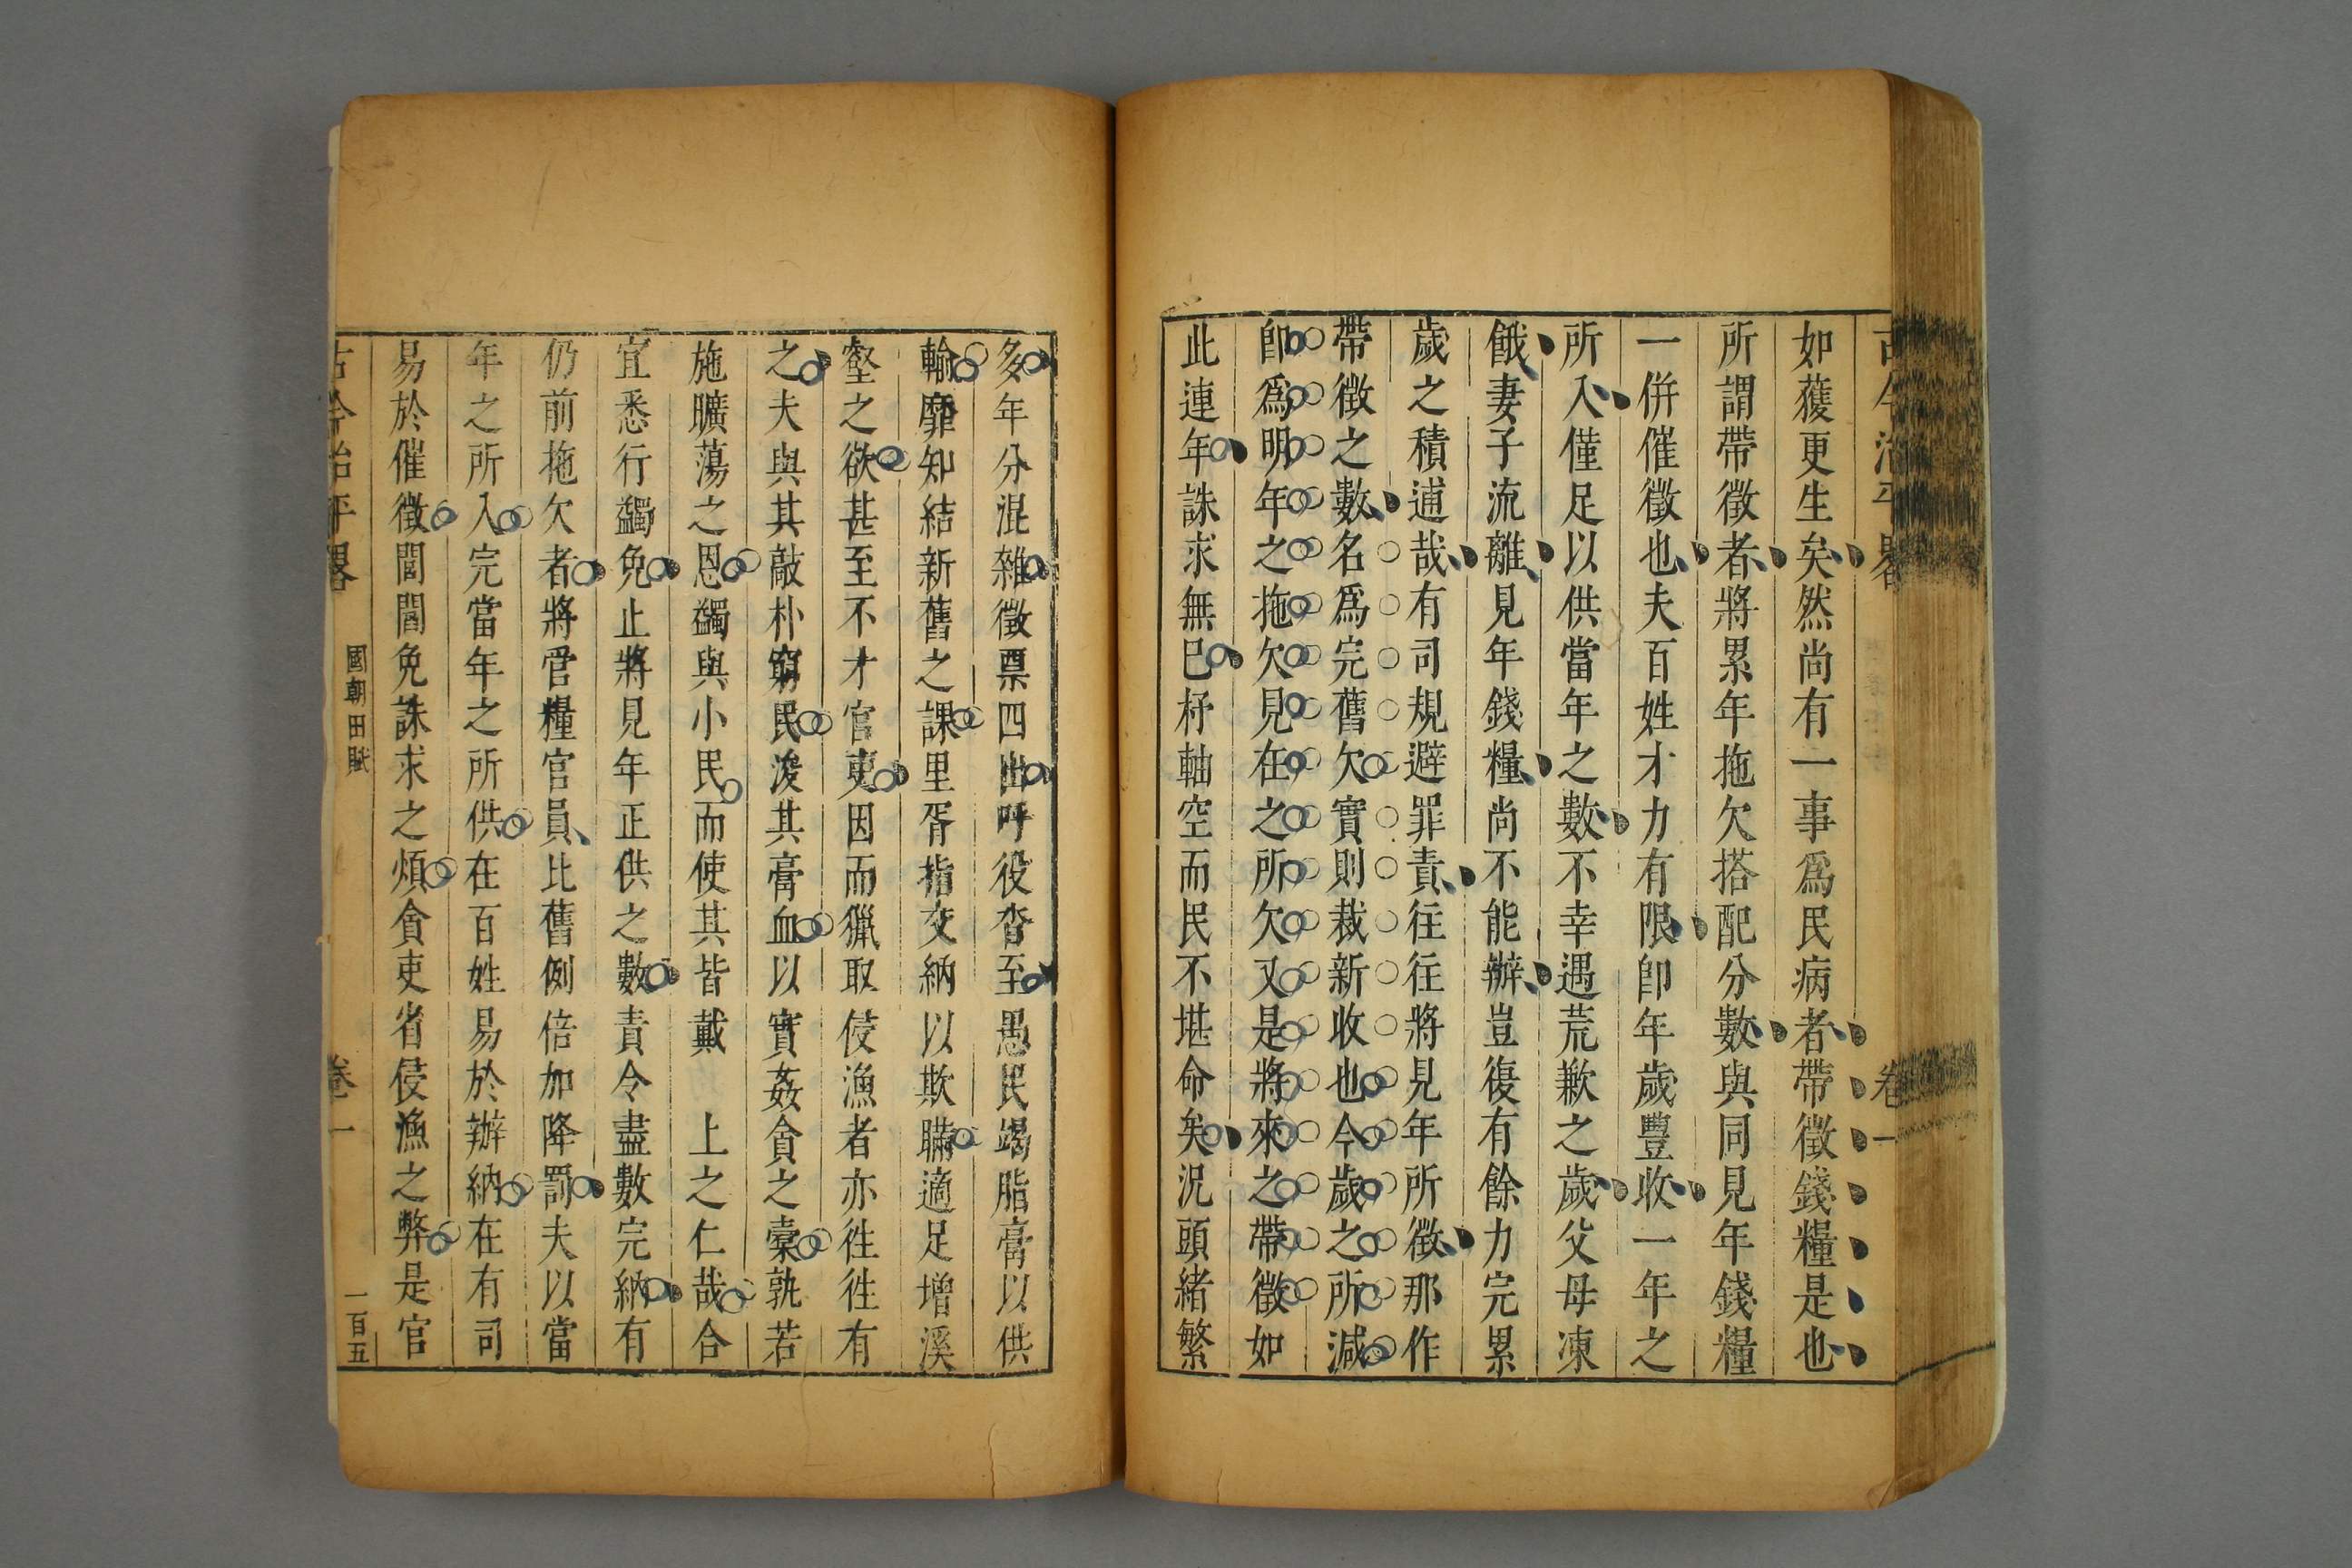 古今治平畧 卷一
如獲更生矣然尚有一事爲民病者帶徵錢糧是也
所謂帶徵者將累年拖欠搭配分數與同見年錢糧
一併催徵也夫百姓才力有限卽年歲豐收一年之
所入僅足以供當年之數不幸遇荒歉之歲父母凍
餓妻子流離見年錢糧尚不能辦豈復有餘力完累
歲之積逋哉有司規避罪責往往將見年所徵那作
帶徵之數名爲完舊欠實則裁新收也今歲之所減
卽爲明年之拖欠見在之所欠又是將來之帶徵如
此連年誅求無已杼軸空而民不堪命矣況頭緒繁
多年分混雜徵票四出呼役沓至愚民竭脂膏以供
輸靡知結新舊之課里胥指交納以欺瞞適足增溪
壑之欲甚至不才官吏因而獵取侵漁者亦往往有
之夫與其敲朴窮民浚其膏血以實姦貪之橐孰若
施曠蕩之恩蠲與小民而使其皆戴 上之仁哉合
宜悉行蠲免止將見年正供之數責令盡數完納有
仍前拖欠者將管糧官員比舊例倍加降罰夫以當
年之所入完當年之所供在百姓易於辦納在有司
易於催徵閭閻免誅求之煩貪吏省侵漁之弊是官
古今治平畧 國朝田賦 卷一 一百五